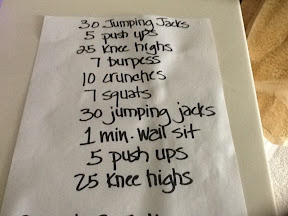 30 Jumping Jacks
5 push ups
25 Knee highs
7 burpess
10 crunches
7 squats
30 jumping jacks
1 min. wall sit
5 push ups
25 Knee highs